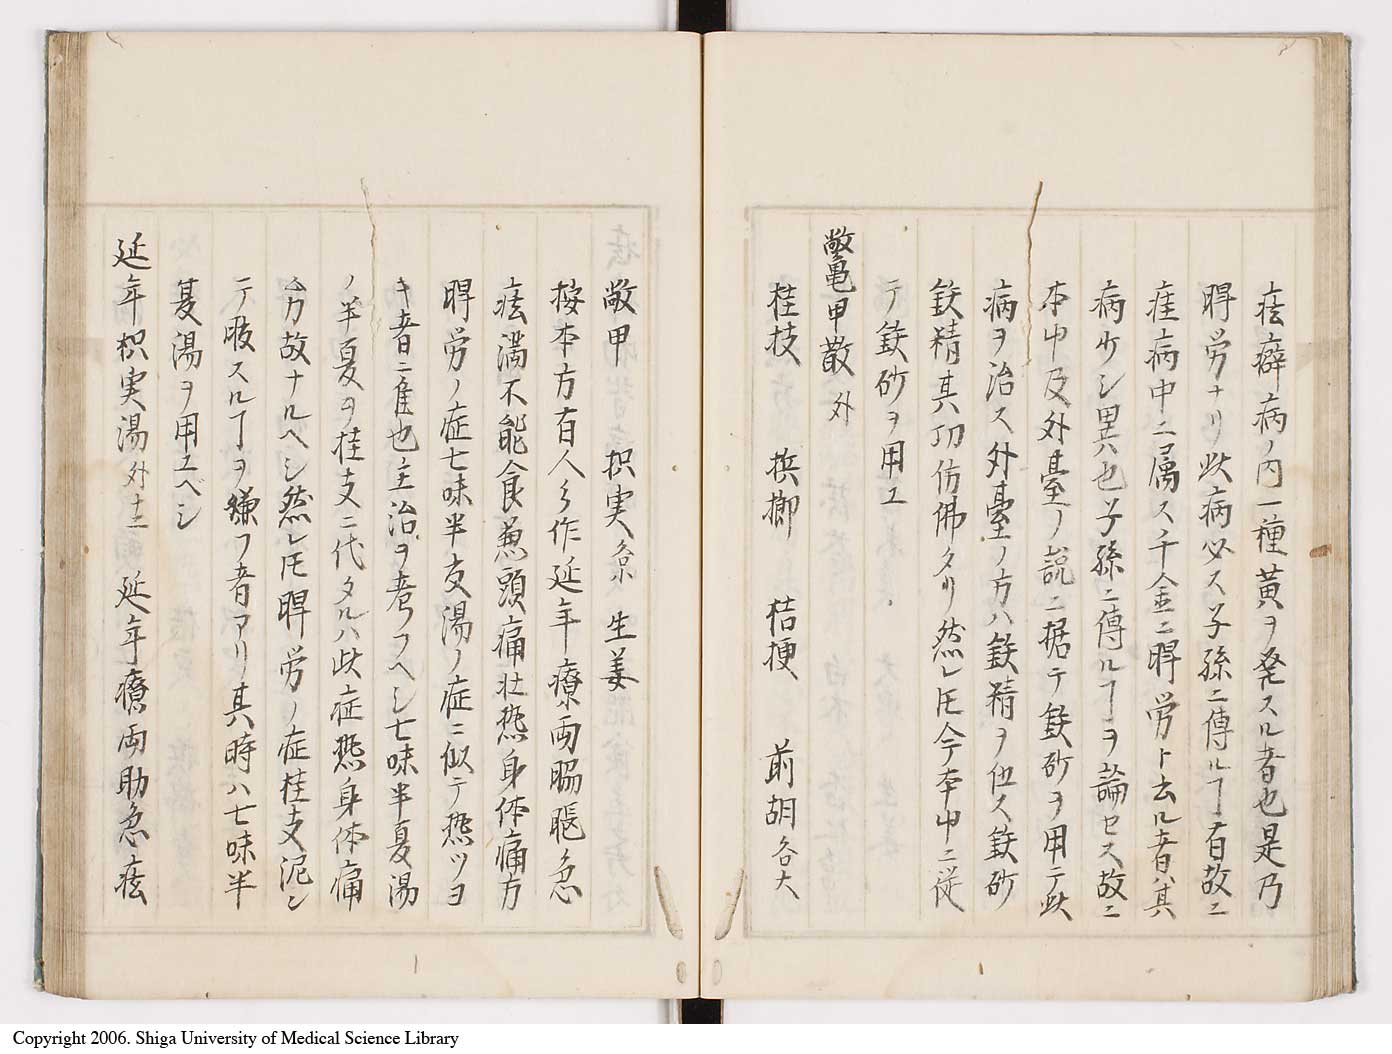 痃癖病ノ内一種黄ヲ発スル者也是乃
脾労ナリ此病必ス子孫ニ傳ルヿ有故ニ
疰病中ニ属ス千金ニ脾労ト云ル者ハ其
病少シ異也子孫ニ傳ルヿヲ論セス故ニ
本中及外臺ノ説ニ据テ鉄砂ヲ用テ此
病ヲ治ス外臺ノ方ハ鉄精ヲ伍ス鉄砂
鉄精其功仿佛タリ然レ𪜈今本中ニ従
テ鉄砂ヲ用ユ
鱉甲散 外
桂枝 檳榔 桔梗 前胡各大
鱉甲 枳実各京 生姜
按本方有人参作延年療両脇脹急
痃満不能食兼頭痛壮熱身体痛方
脾労ノ症七味半夏湯ノ症ニ似テ熱ツヨ
キ者ニ准也主治ヲ考フヘシ七味半夏湯
ノ半夏ヲ桂支ニ代タルハ此症熱身体痛
ムカ故ナルヘシ然レ𪜈脾労ノ症桂支泥シ
テ服スルヿヲ嫌フ者アリ其時ハ七味半
夏湯ヲ用ユベシ
延年枳実湯 外十二 延年療両肋急痃
Copyright 2006. Shiga University of Medical Science Library